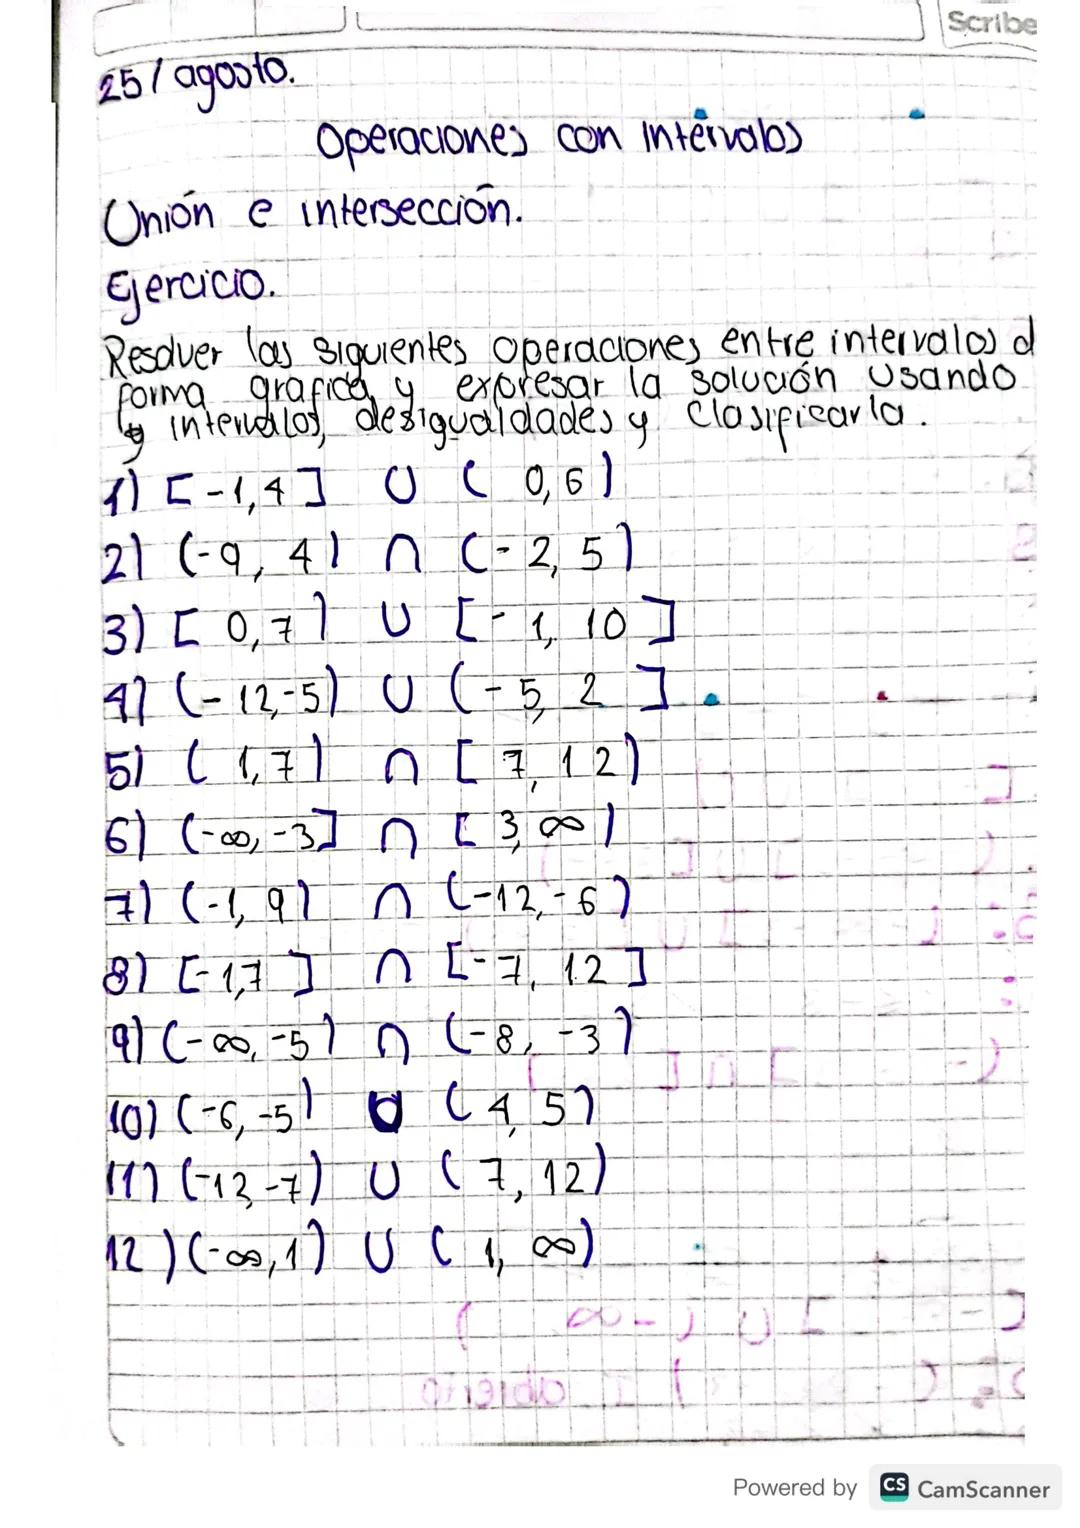 Scribe
25/agosto.
Operaciones con Intervalos
Unión e intersección.
Ejercicio.
Resolver las siguientes operaciones entre intervalos d
forma grafica y expresar la solución usando
intervalos, desigualdades y clasificarla.
1) [-1,4] ∪ (0,6)
2) (-9, 4) ∩ (-2, 5)
3) [0,7) ∪ [-1, 10]
4) (-12,-5) ∪ (-5, 2]
5) (1,7) ∩ [7, 12)
6) (-∞, -3] ∩ [3, ∞)
7) (-1, 9) ∩ (-12, -6)
8) [-1,7] ∩ [-7, 12]
9) (-∞, -5) ∩ (-8, -3)
10) (-6, -5) ∪ (4, 5)
11) (-13,-7) ∪ (7, 12)
12) (-∞,1) ∪ (1, ∞)
Powered by CS CamScanner